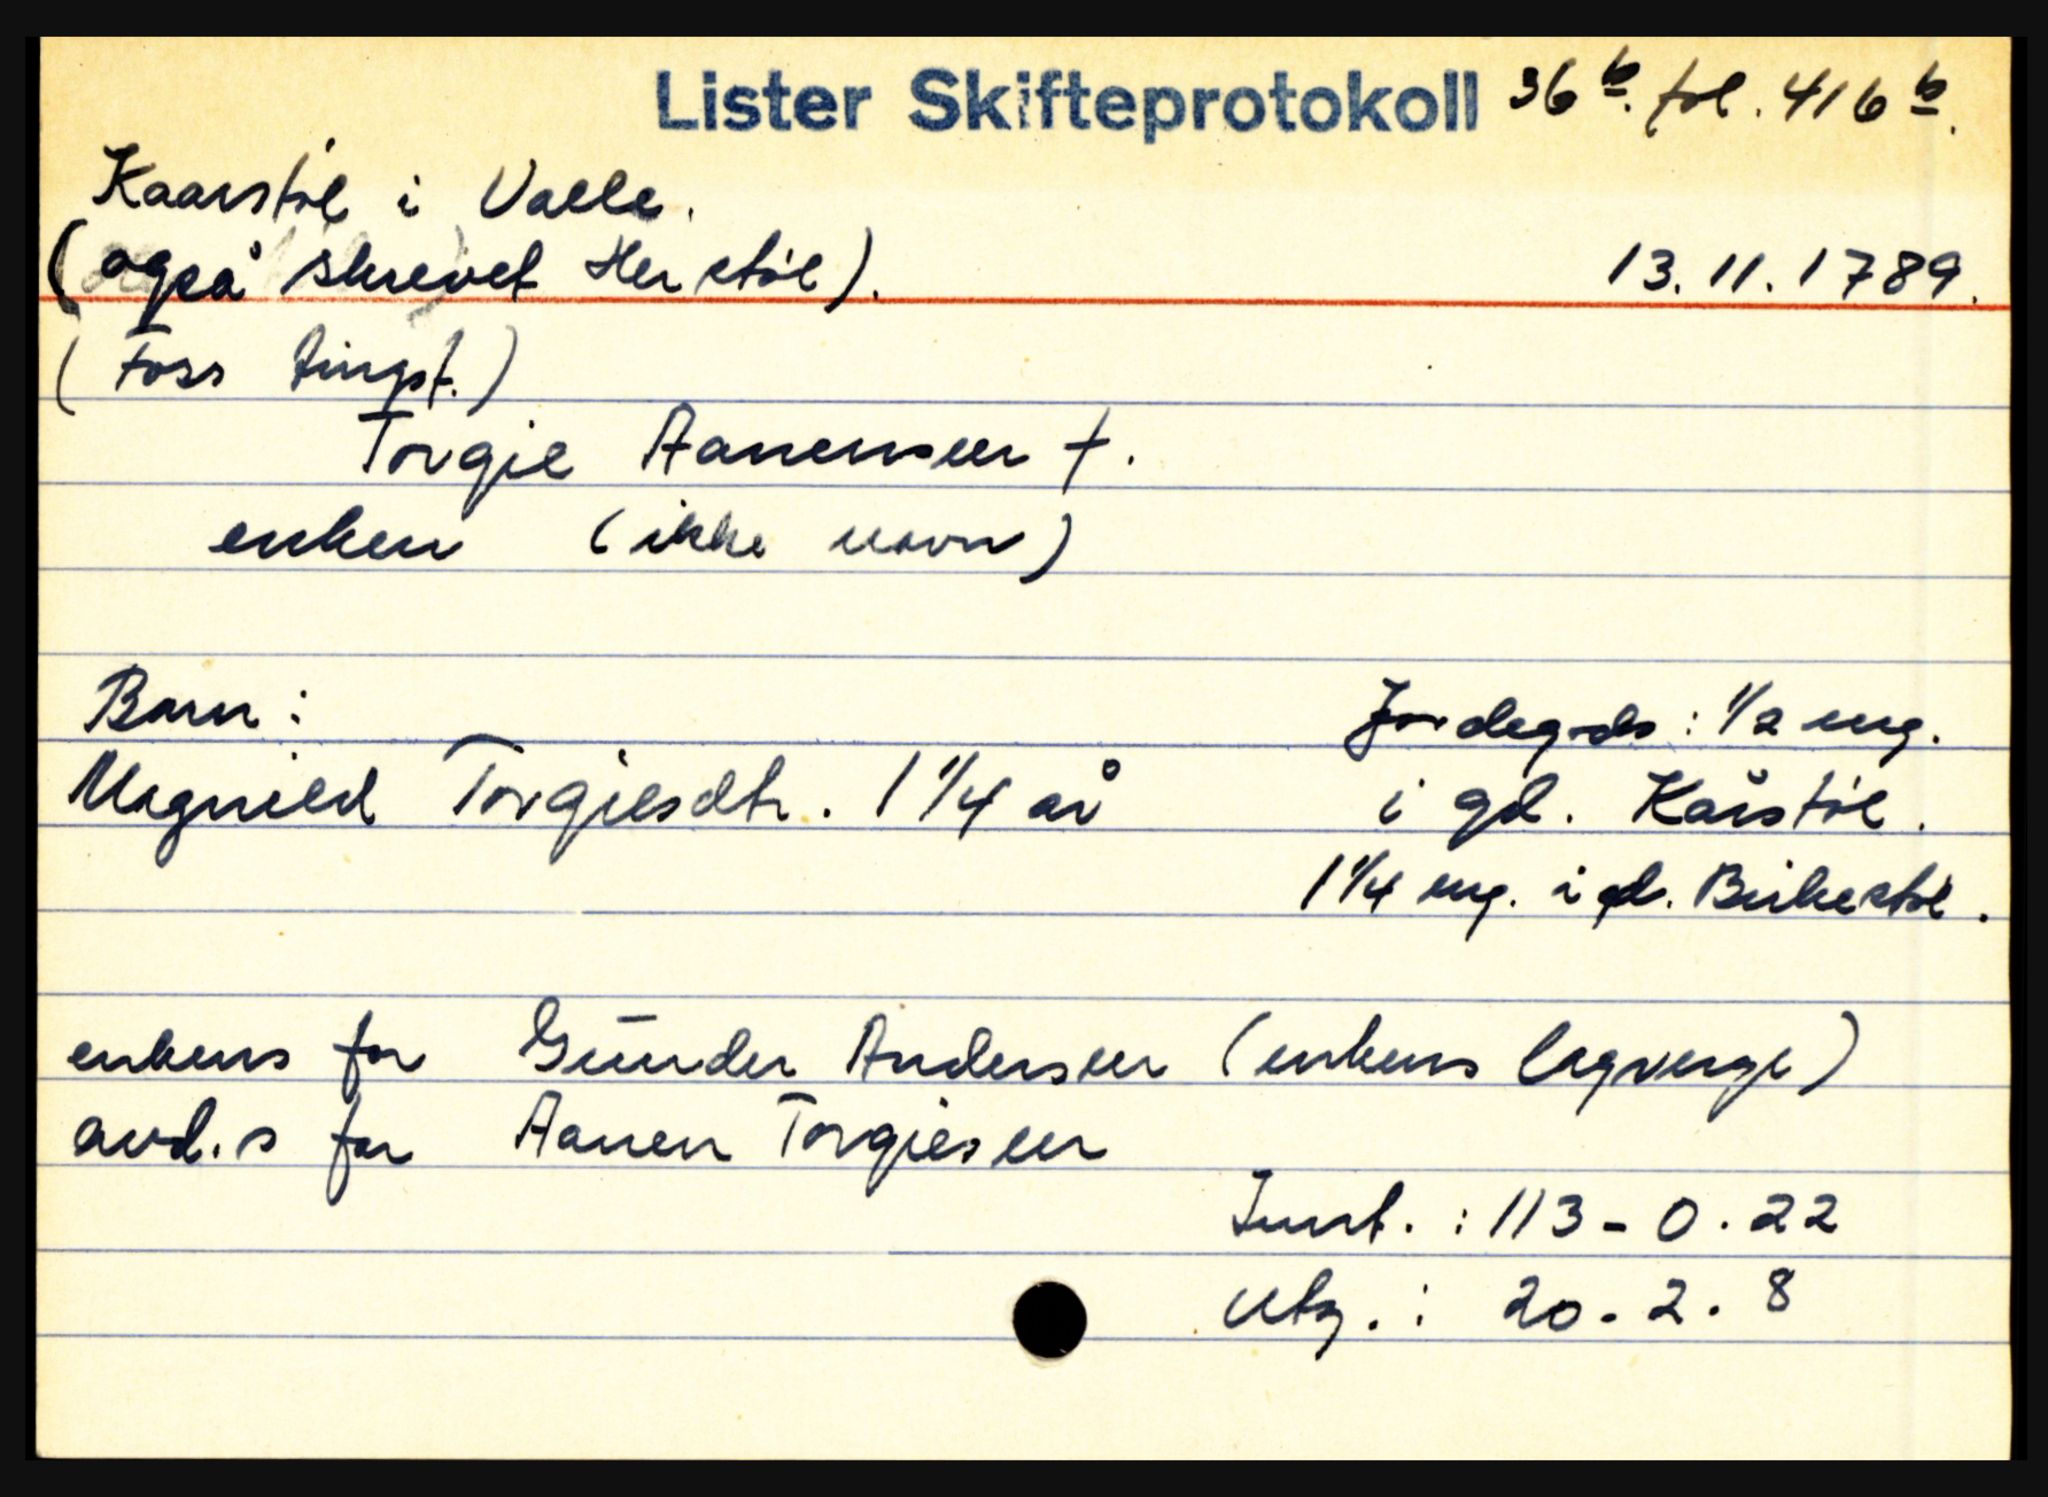 Lister Skifteprotokoll 36 b. fol. 416 b.
Kaarstøl i Valle.
(også skrevet Herstøl). 13.11.1789.
(Foss tingst.)
Torgie Aanensen †.
enken (ikke navn)
Barn: Jordegods: 1/2 eng.
Magnild Torgiesdtr. 1 1/4 år i gd. Kårstøl.
1 1/4 eng. i gd. Birkestøl.
enkens far Gunder Andersen (enkens lagverge)
avd.s far Aanen Torgiesen
Innt.: 113 - 0. 22
Utg.: 20. 2. 8